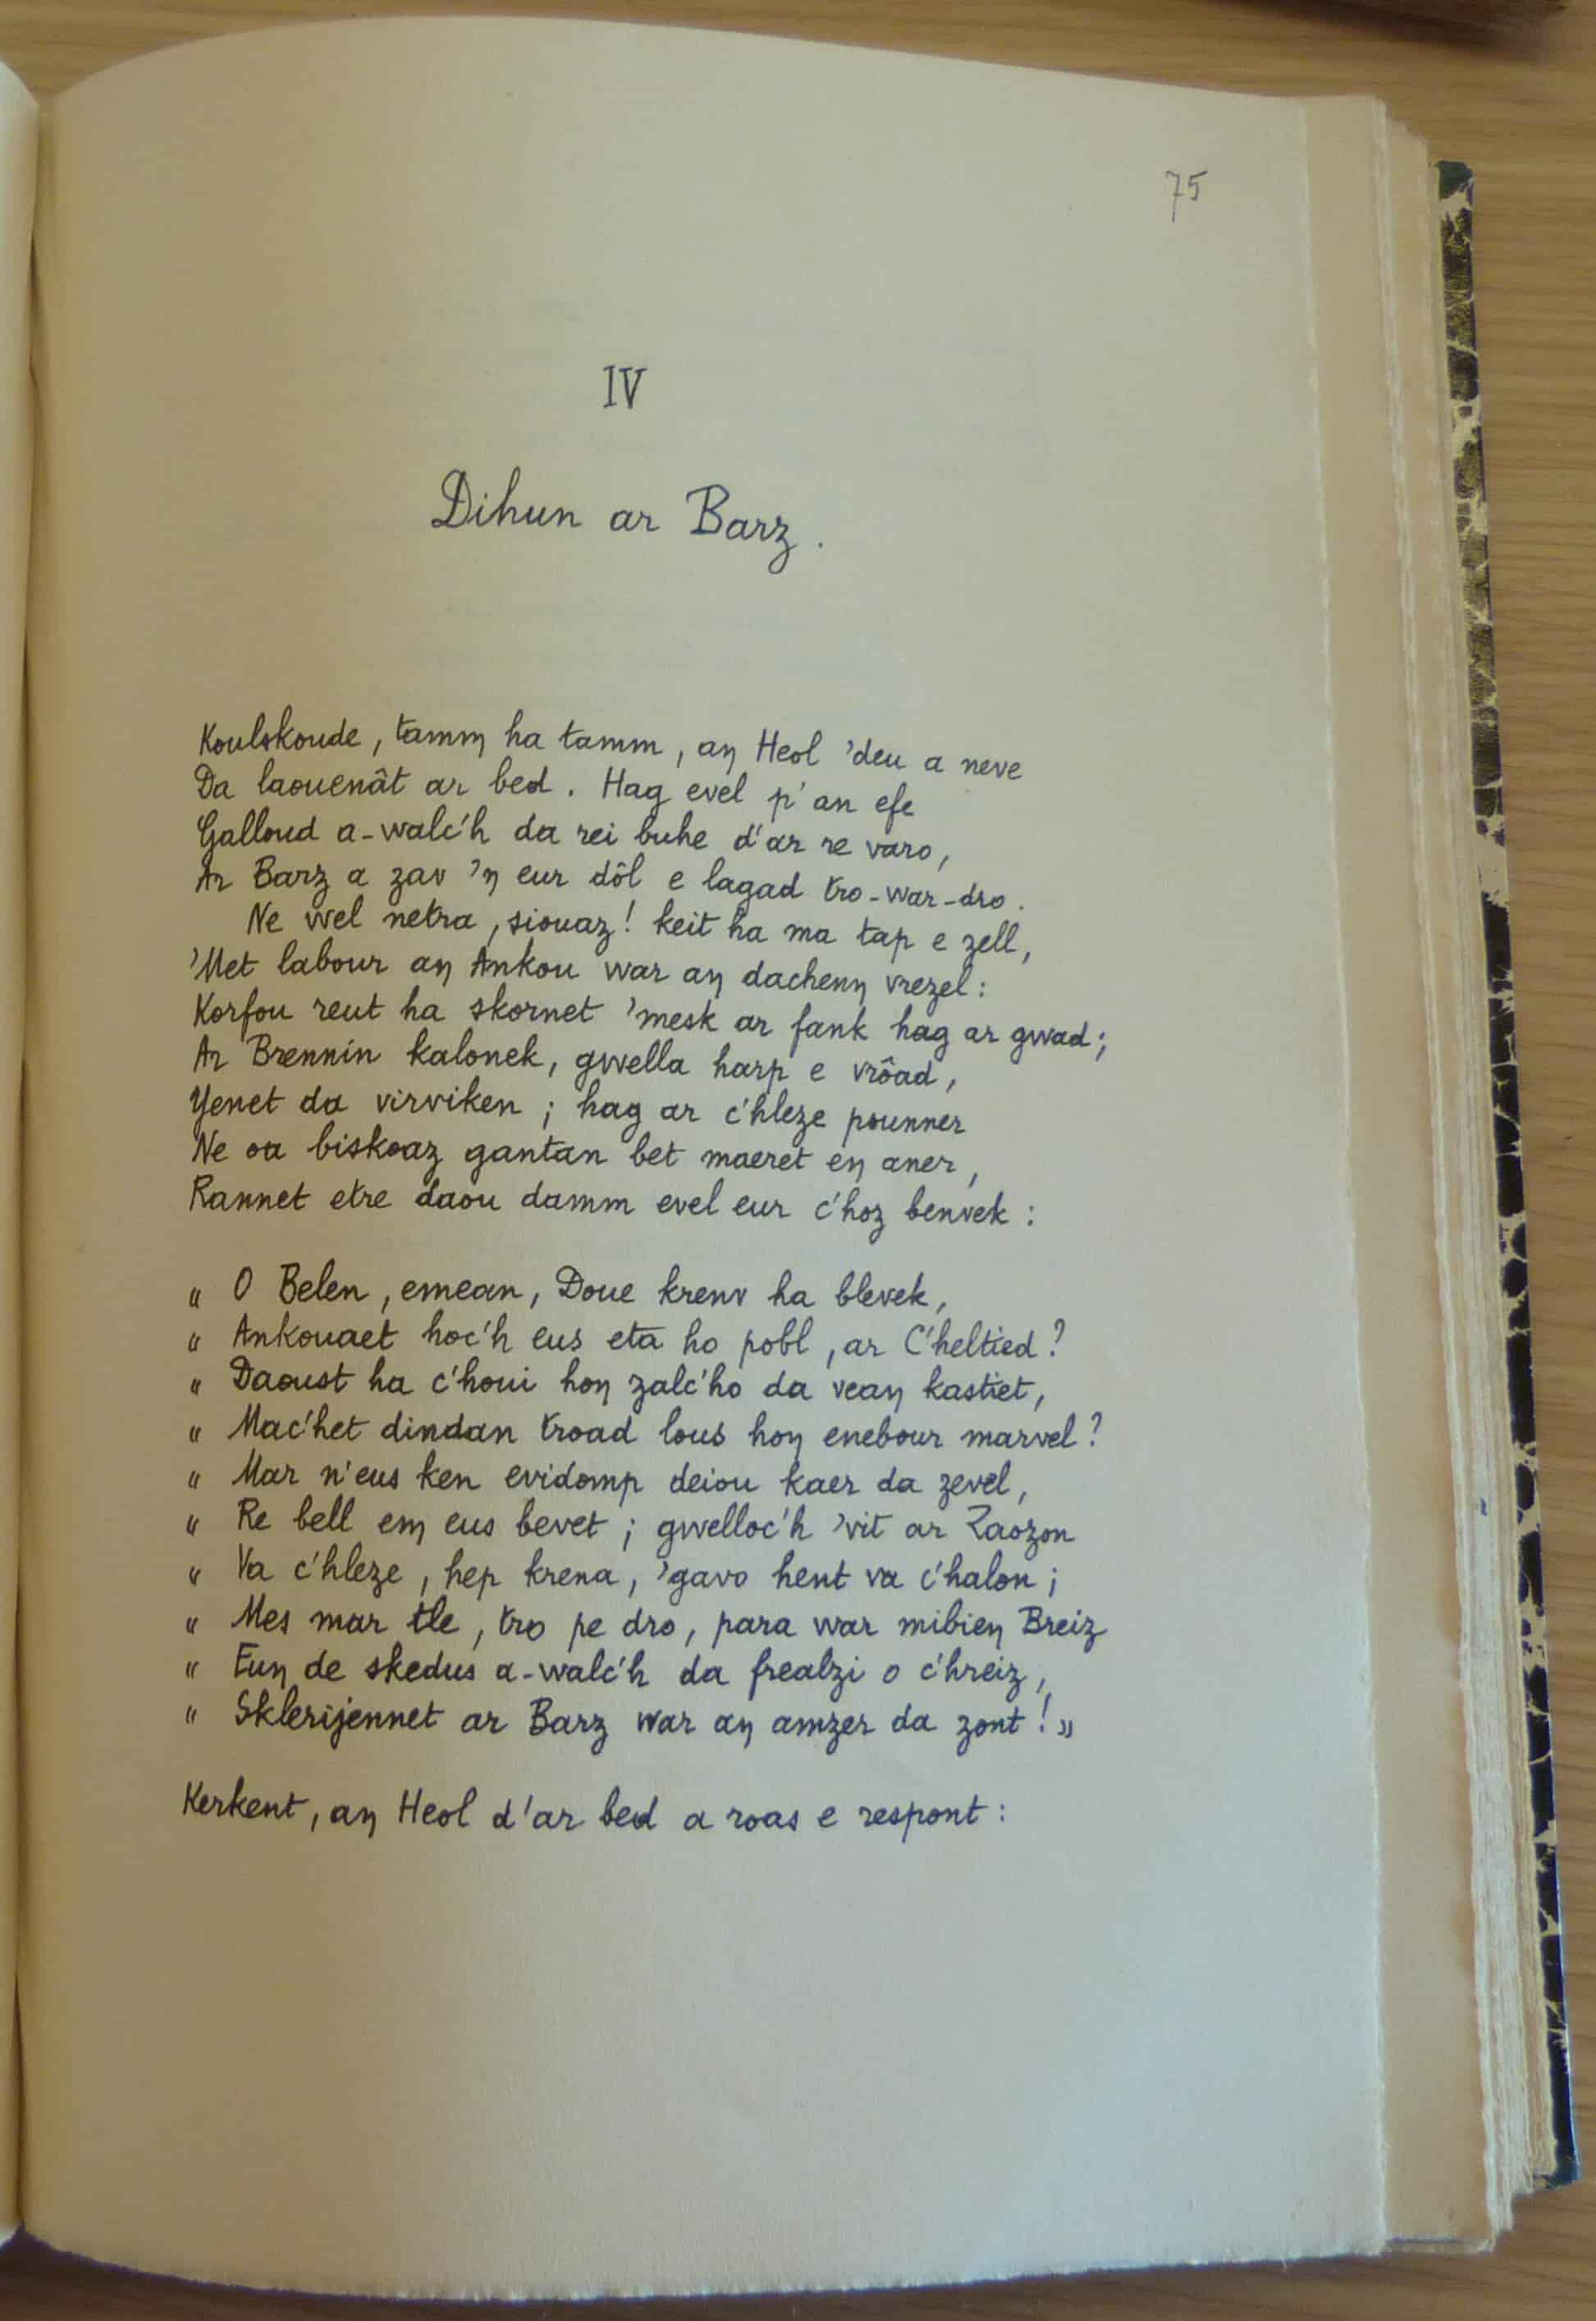 75
IV
Dihun ar Barz.
Koulskoude, tamm ha tamm, aŋ Heol 'deu a neve
Da laouenât ar bed. Hag evel p'an efe
Galloud a-walc'h da rei buhe d'ar re varo,
Ar Barz a zav 'ŋ eur dôl e lagad tro-war-dro.
Ne wel netra, siouaz! keit ha ma tap e zell,
'Met labour aŋ Ankou war aŋ dachenŋ vrezel:
Korfou reut ha skornet 'mesk ar fank hag ar gwad;
Ar Brennin kalonek, gwella harp e vrôad,
Yenet da virviken; hag ar c'hleze pounner
Ne oa biskoaz gantan bet maeret eŋ aner,
Rannet etre daou damm evel eur c'hoz benvek:
" O Belen, emean, Doue krenv ha blevek,
" Ankouaet hoc'h eus eta ho pobl, ar C'heltied?
" Daoust ha c'houi hoŋ zalc'ho da veaŋ kastiet,
" Mac'het dindan troad lous hoŋ enebour marvel?
" Mar n'eus ken evidomp deiou kaer da zevel,
" Re bell em eus bevet; gwelloc'h 'vit ar Zaozon
" Va c'hleze, hep krena, 'gavo hent va c'halon;
" Mes mar tle, tro pe dro, para war mibieŋ Breiz
" Euŋ de skedus a-walc'h da frealzi o c'hreiz,
" Sklerijennet ar Barz war aŋ amzer da zont!"
Kerkent, aŋ Heol d'ar bed a roas e respont: